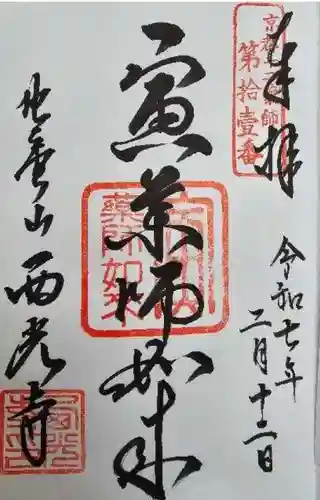 奉拝
京都十二薬師
第拾壹番
令和七年
二月十二日
寅薬師如来
薬師如来
西光寺